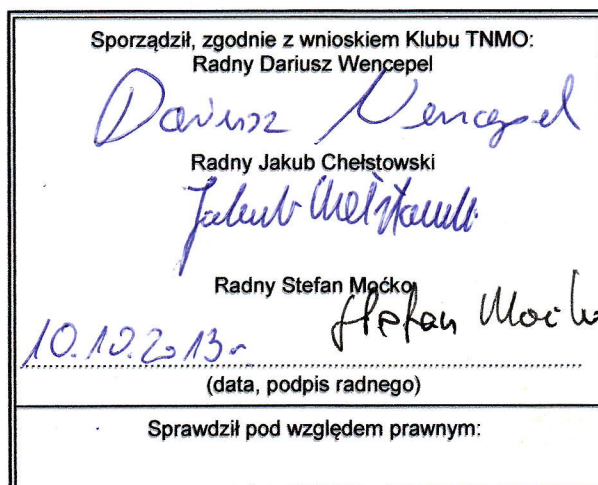 Sporządził, zgodnie z wnioskiem Klubu TNMO:
Radny Dariusz Wencepel
Dariusz Wencepel
Radny Jakub Chełstowski
Jakub Chełstowski
Radny Stefan Moćko
Stefan Moćko
10.10.2013r
(data, podpis radnego)
Sprawdził pod względem prawnym: